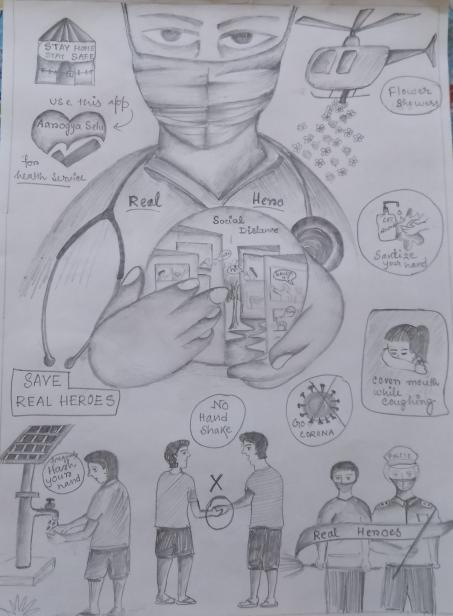 STAY HOME
STAY SAFE
use this app
Aarogya Setu
for
health service
Flower
Showers
Real Hero
Social
Distance
Sanitize
your hand
SAVE
REAL HEROES
cover mouth
while
coughing
No
Hand
Shake
X
Go
CORONA
Wash
your
hand
POLICE
Real Heroes